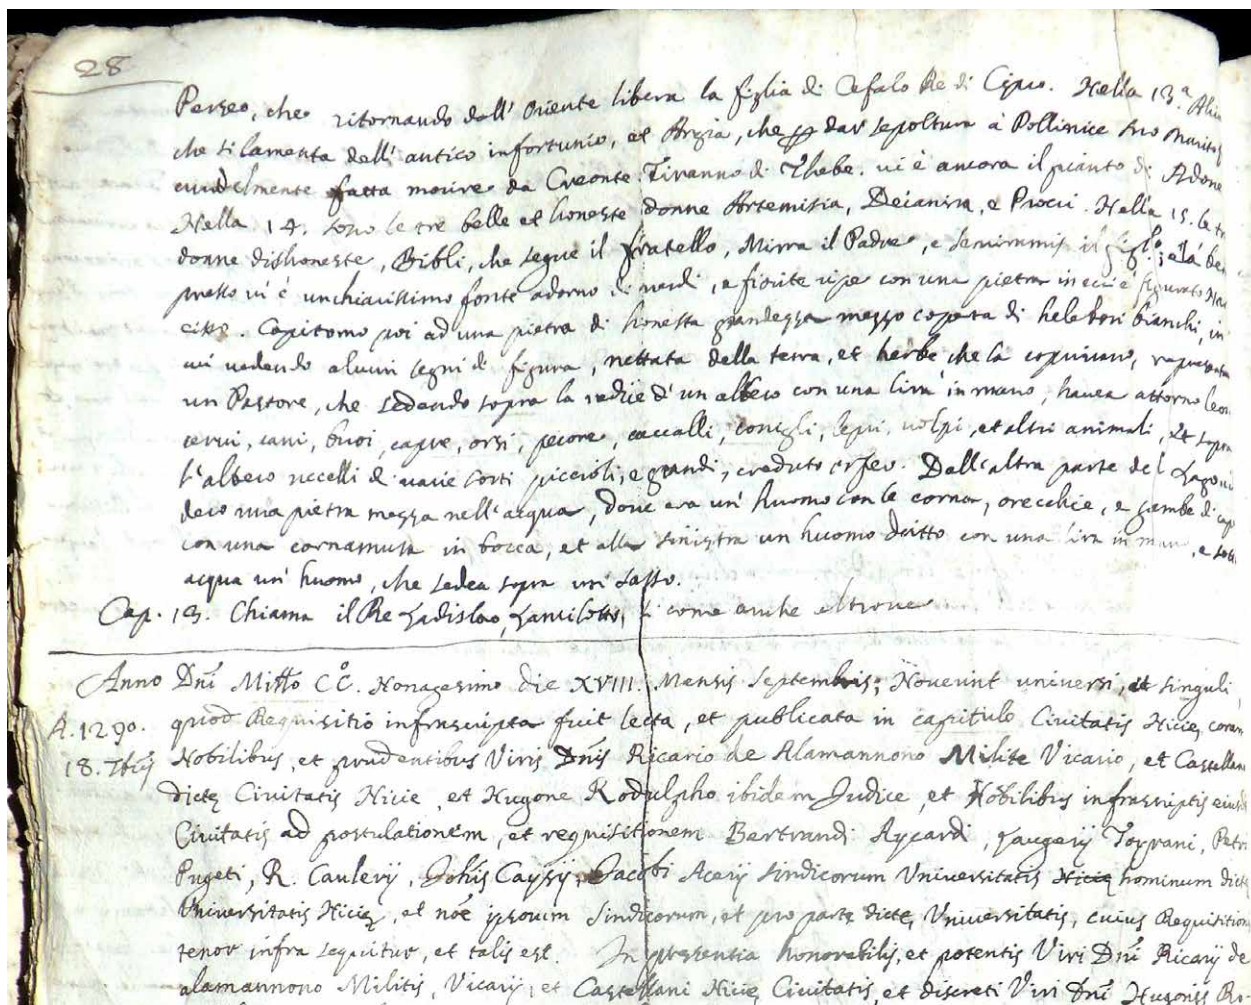 28
Perseo, che ritornando dall' Oriente libera la figlia di Cefalo Re di Cipro. Nella 13.a
che si lamenta dell' antico infortunio, et Argia, che dar sepoltura à Pollinice suo marito
crudelmente fatta morire da Creonte Tiranno di Thebe. vi è ancora il pianto di Adone
Nella 14. sono le tre belle et honeste donne Artemisia, Deianira, e Procri. Nella 15. le tre
donne dishoneste, Bibli, che segue il fratello, Mirra il Padre, e Semiramis il figlo; e là
presso vi è un chiarissimo fonte adorno di verdi, e fiorite ripe con una pietra in cui è figurato
. Capitomo poi ad una pietra di honesta grandezza mezzo coperta di helebori bianchi, in
cui vedendo alcuni segni di figura, nettata della terra, et herbe che la coprivano,
un Pastore, che sedendo sopra la radice d' un albero con una lira in mano, havea attorno
cervi, cani, buoi, capre, orsi, pecore, cavalli, conigli, lepri, volpi, et altri animali, et sopra
l' albero uccelli di varie sorti piccioli, e grandi, creduto orfeo. Dall' altra parte del
una pietra mezza nell' acqua, dove era un' huomo con le corna, orecchie, e gambe di
con una cornamusa in bocca, et alla sinistra un huomo dritto con una lira in mano, e
acqua un' huomo, che sedea sopra un sasso.
Cap. 13. Chiama il Re Ladislao, Lanciloto, si come anche altrove
Anno Dñi Millo CC. Nonagesimo die XVIII. Mensis Septembris; Noverint universi, et singuli,
A. 1290. quod Requisitio infrascripta fuit lecta, et publicata in capitulo Civitatis Niciȩ, coram
18. 7brij Nobilibus, et prudentibus Viris Dñis Ricario de Alamannono Milite Vicario, et
dictȩ Civitatis Nicie, et Hugone Rodulpho ibidem Judice, et Nobilibus infrascriptis
Civitatis ad postulationem, et requisitionem Bertrandi Aycardi, Laugerij, Petri
Pugeti, R. Caulerij, Johis Caysij, Jacobi Acerij Sindicorum Universitatis hominum dictȩ
Universitatis Niciȩ, et nõe ipsorum Sindicorum, et pro parte dictȩ Universitatis, cuius
tenor infra sequitur, et talis est. In presentia honorabilis, et potentis Viri Dñi Ricarij de
alamannono Militis, Vicarij, et Castellani Niciȩ Civitatis, et discreti Viri Dñi Hugonis